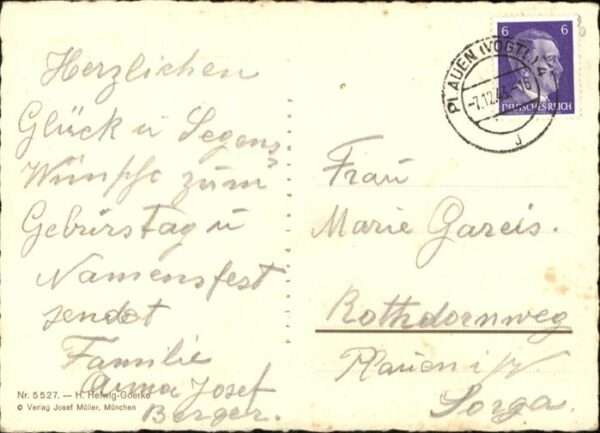 Herzlichen
Glück u Segens
Wünsche zum
Geburstag u
Namensfest
sendet
Familie
Anna Josef
Berger.
Nr. 5527. — H. Hellwig-Goerke
© Verlag Josef Müller, München
6 6
DEUTSCHES REICH
PLAUEN (VOGTL)
-7.12.43
Frau
Marie Gareis.
Rothdornweg
Plauen i/V.
Sorga.